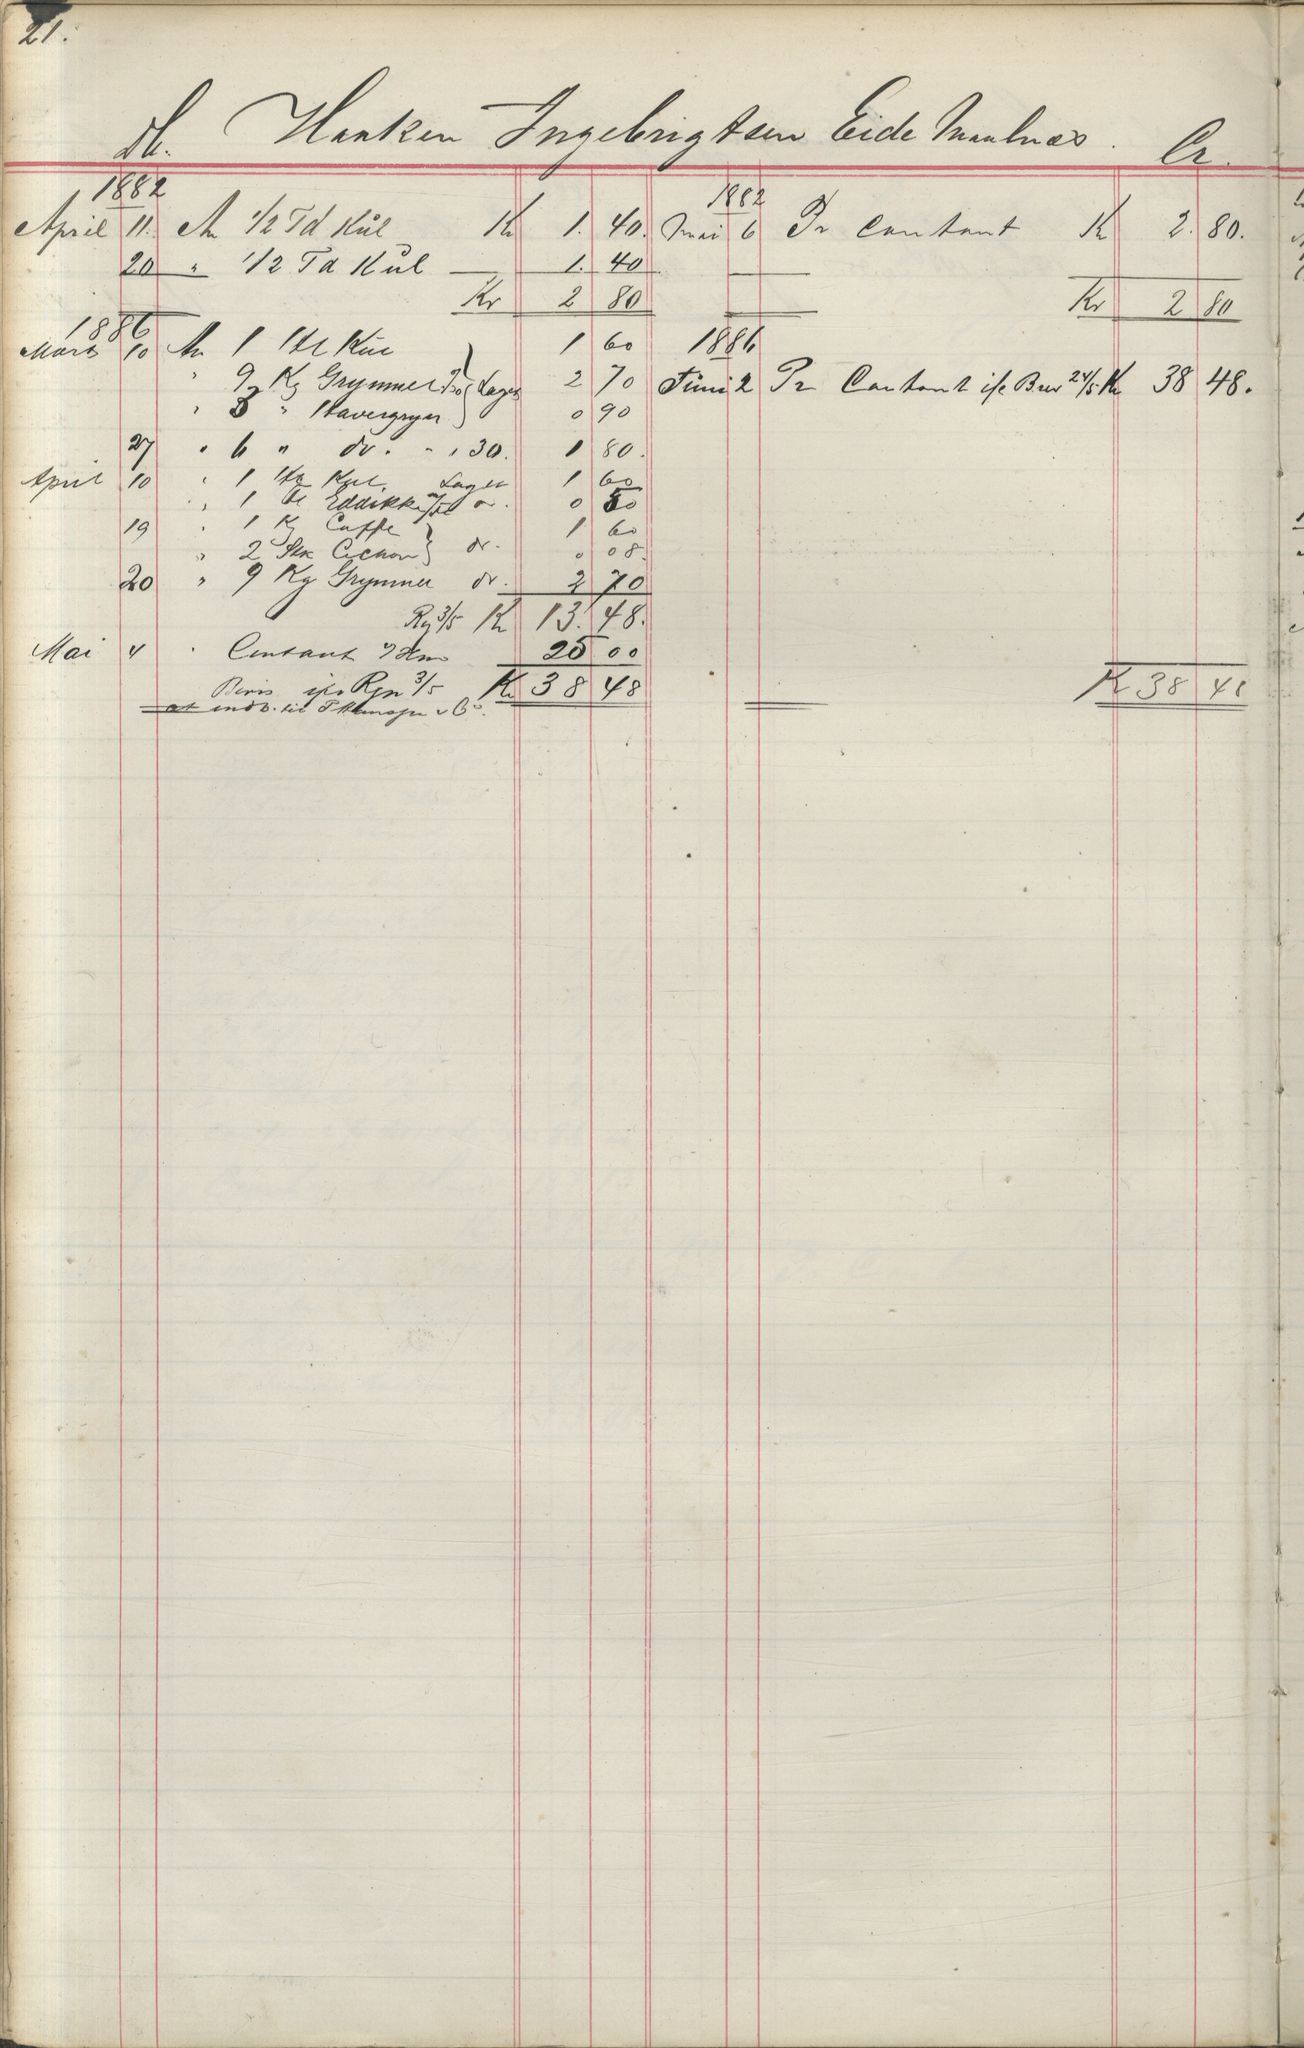 21.
Db. Haaken Ingebrigtsen Eide Maalnæs. Cr.
1882 1882
April 11. An 1/2 Td Kul Kr 1. 40. Mai 6 Pr Contant Kr 2. 80.
20 " 1/2 Td Kul 1. 40
Kr 2 80 Kr 2 80
1886 1886
Marts 10 An 1 Hl Kul 1 60
" 9 Kg Grynmel Lager 2 70 Juni 2 Pr Contant if Brev 24/5 Kr 38 48.
" 3 " Havregryn 0 90
27 " 6 " do. " " 30. 1 80.
April 10 " 1 Hl Kul. Lager 1 60
" 1 Fl Eddikke do. 0 50
19 " 1 Kg Caffe 1 60
" 2 Stk Cichori do. 0 08.
20 " 9 Kg Grynmel do. 2 70
Rg 3/5 Kr 13. 48.
Mai 4 " Contant 25 00
Kr 38 48 Kr 38 48